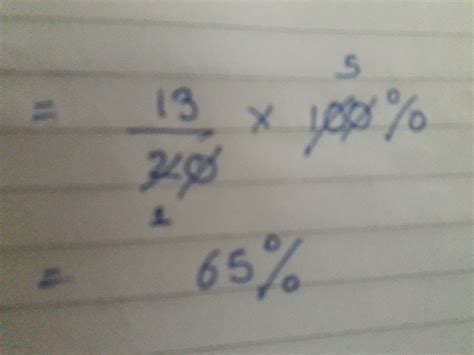 5
= 13/20 × 100%
1
= 65%